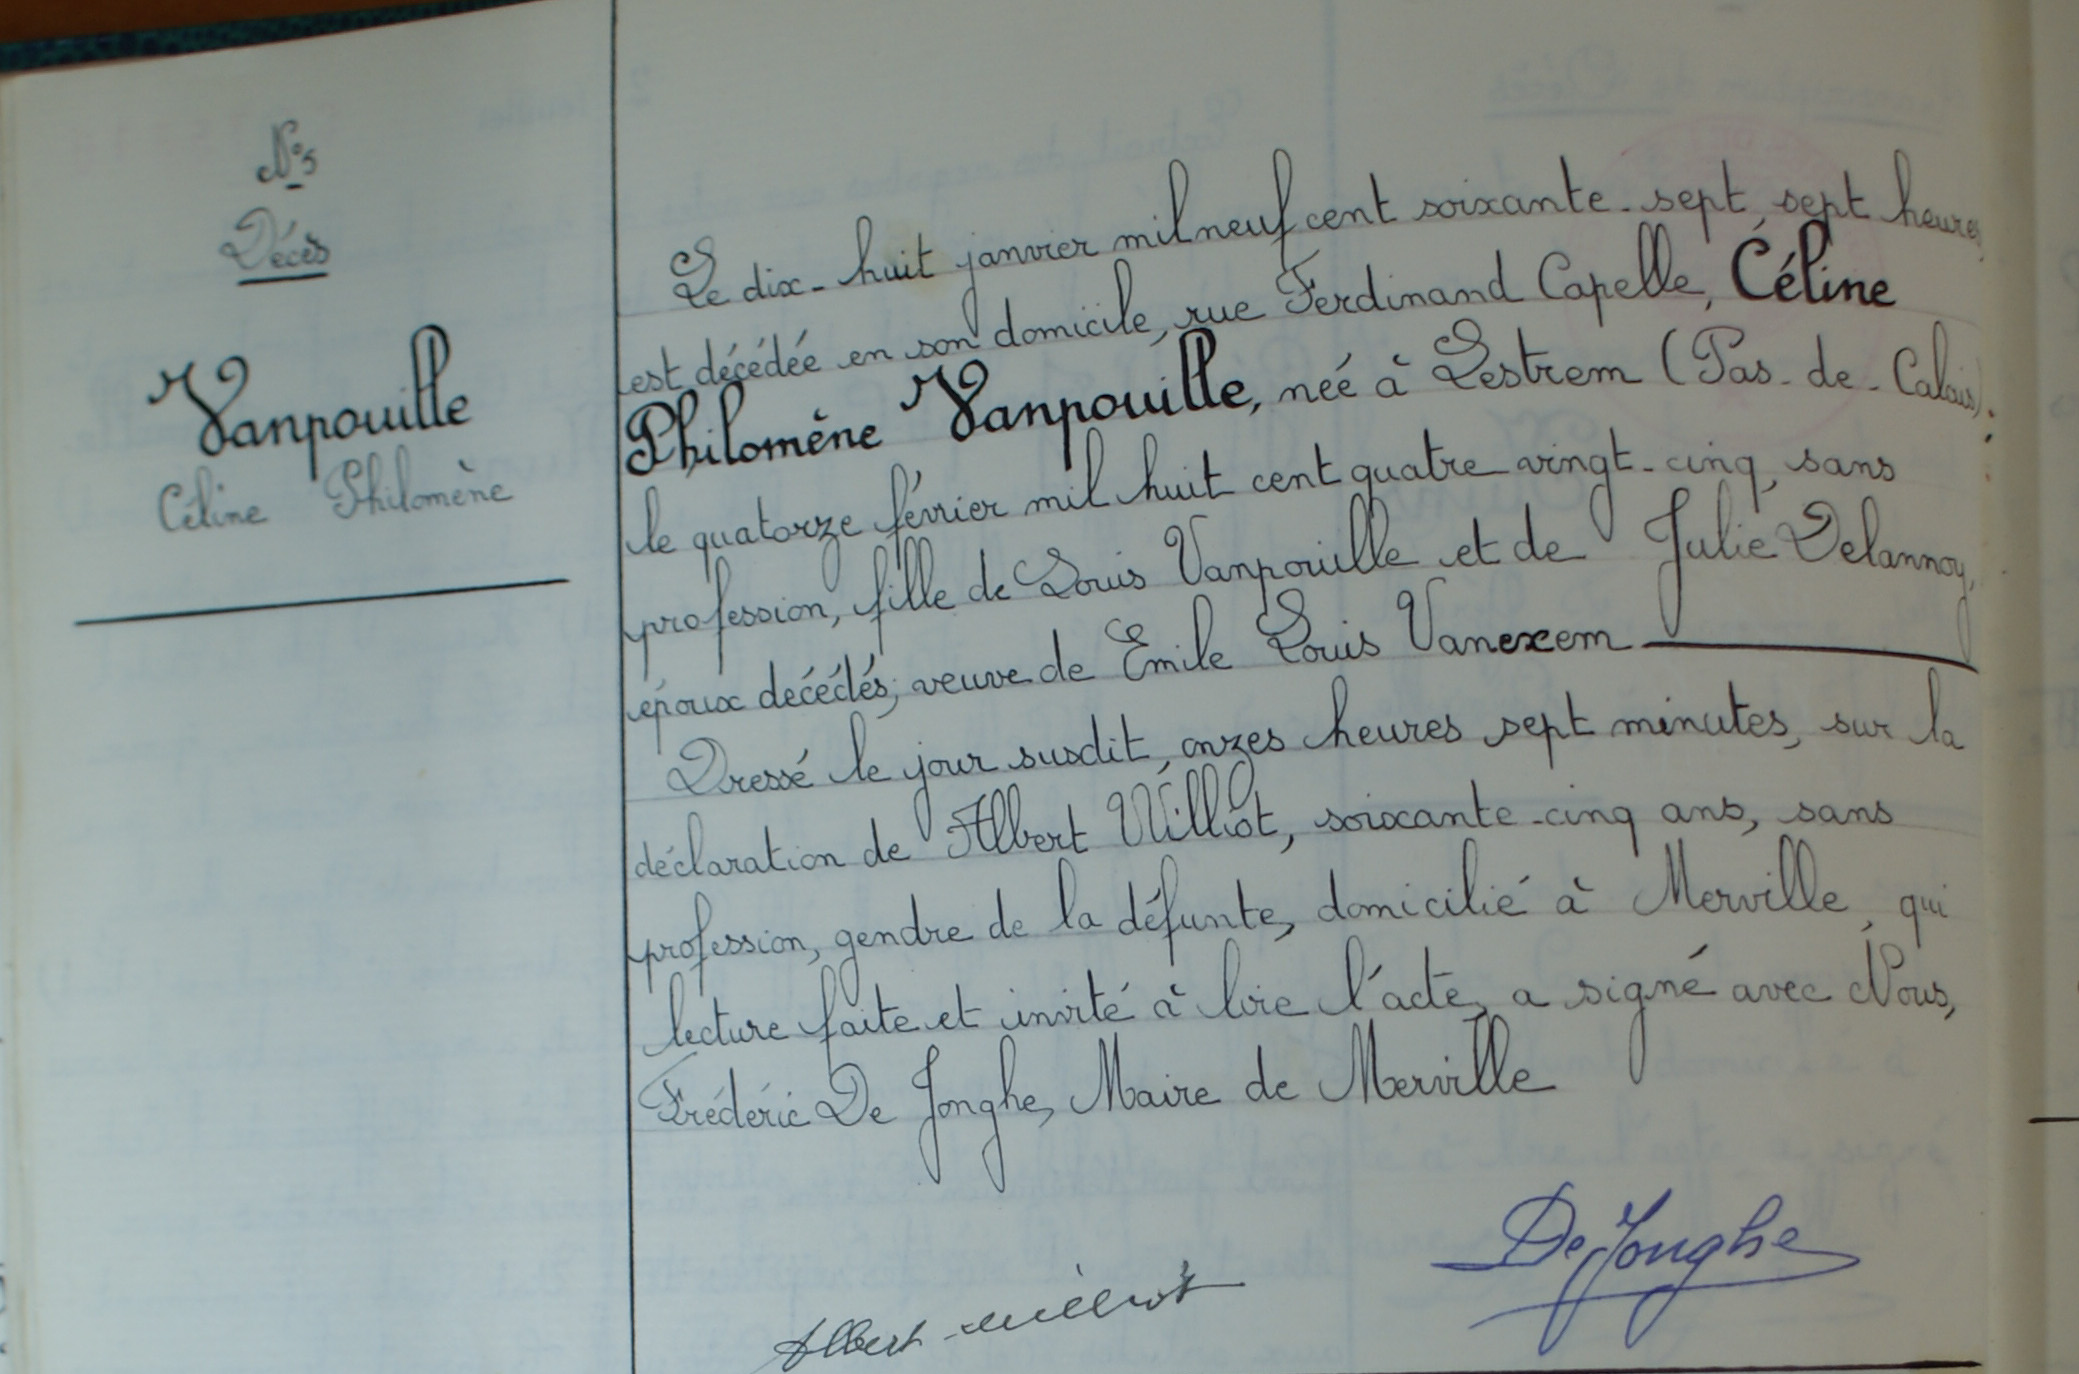 N°5
Décès
Vanpouille
Céline Philomène
Le dix-huit janvier mil neuf cent soixante-sept, sept heures,
est décédée en son domicile, rue Ferdinand Capelle, Céline
Philomène Vanpouille, née à Lestrem (Pas-de-Calais),
le quatorze février mil huit cent quatre vingt-cinq, sans
profession, fille de Louis Vanpouille et de Julie Delannoy,
époux decédés; veuve de Emile Louis Vanexem
Dressé le jour susdit, onzes heures sept minutes, sur la
déclaration de Albert Williot, soixante-cinq ans, sans
profession, gendre de la défunte, domicilié à Merville, qui
lecture faite et invité à lire l'acte, a signé avec Nous,
Frédéric De Jonghe, Maire de Merville
De Jonghe
Albert Williot